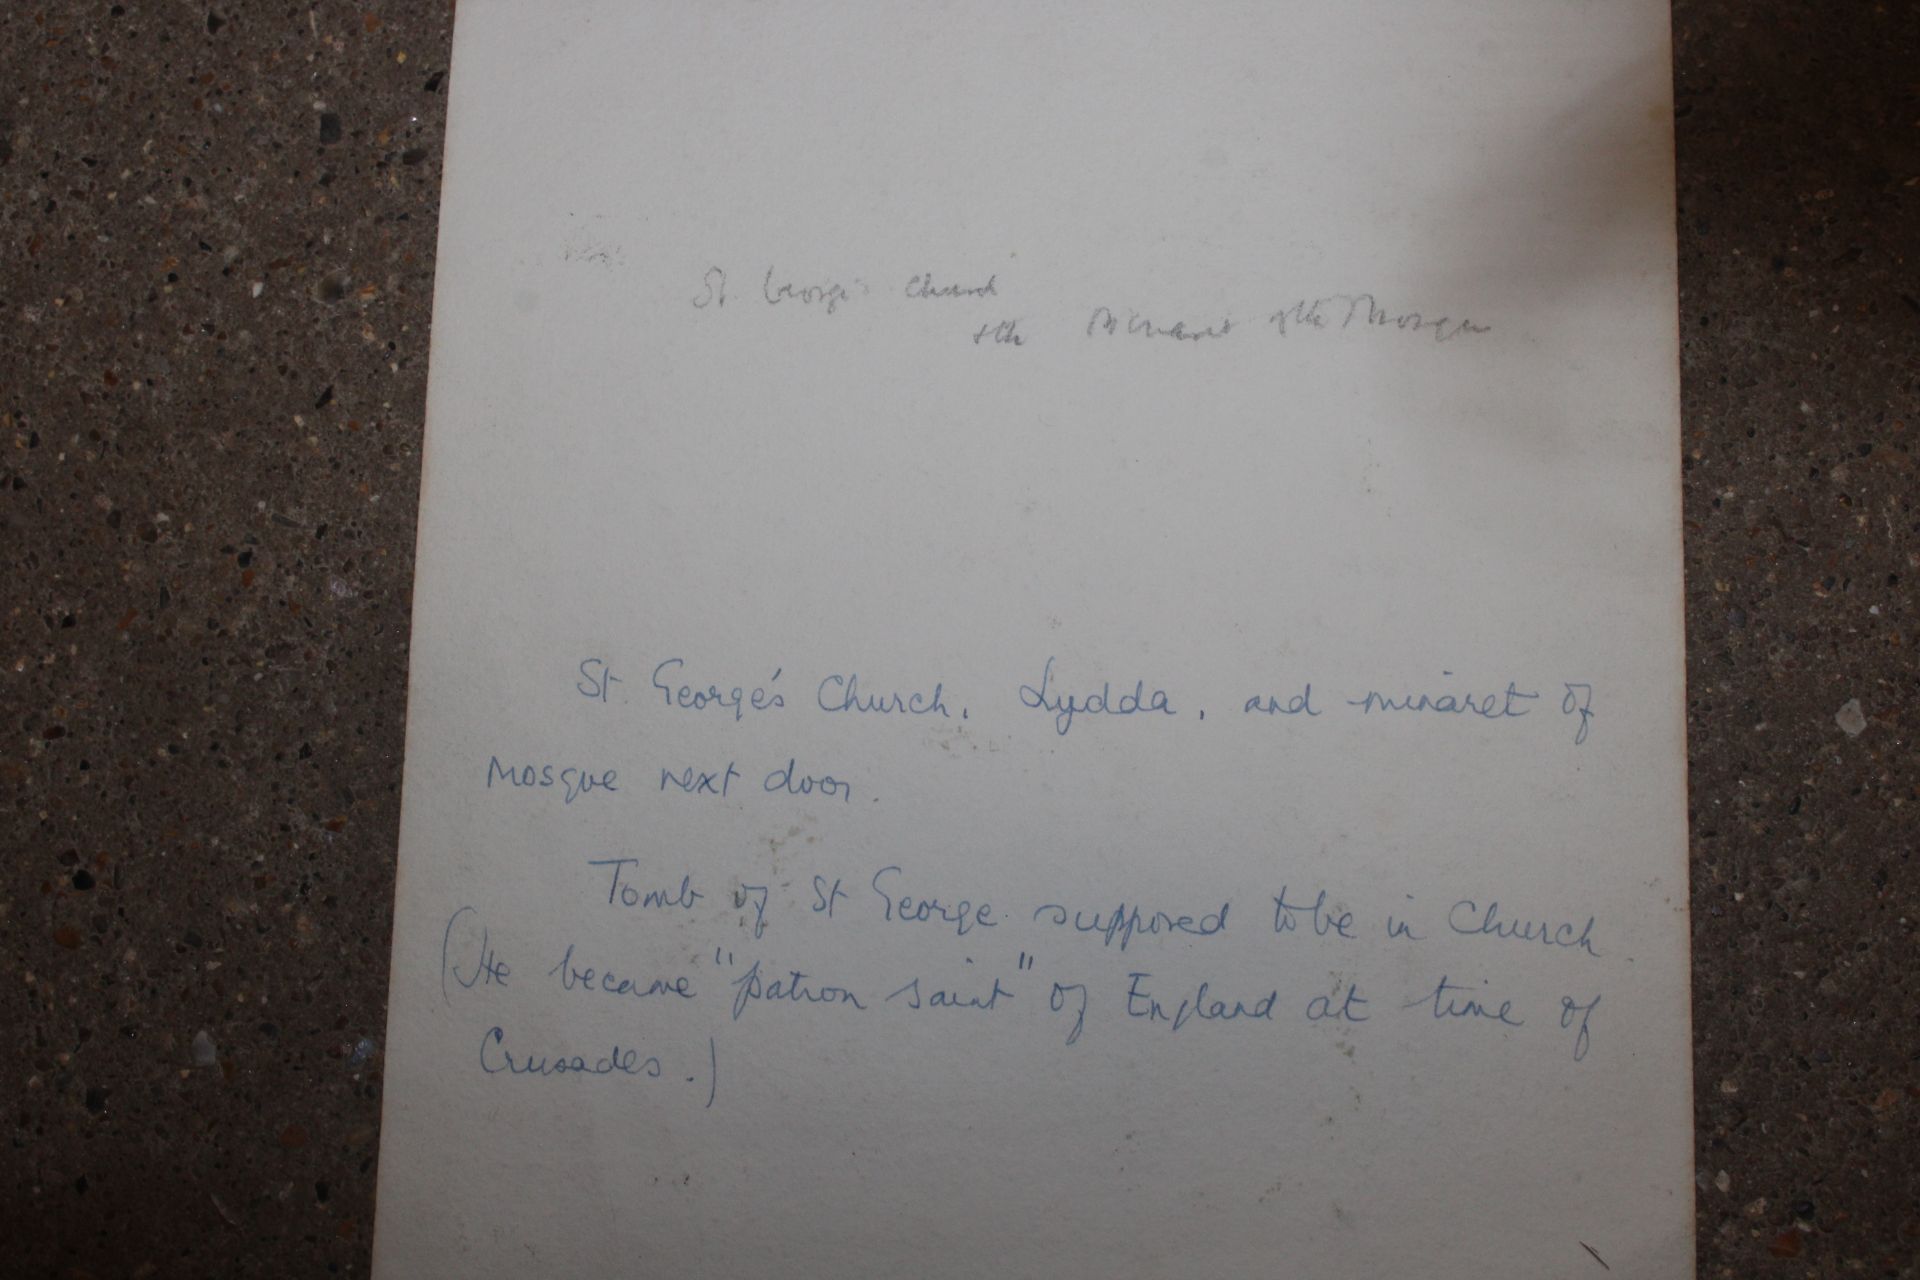 St. George's Church
+ the Minaret of the Mosque
St. George's Church, Lydda, and minaret of
Mosque next door.
Tomb of St George supposed to be in Church.
(He became "patron saint" of England at time of
Crusades.)